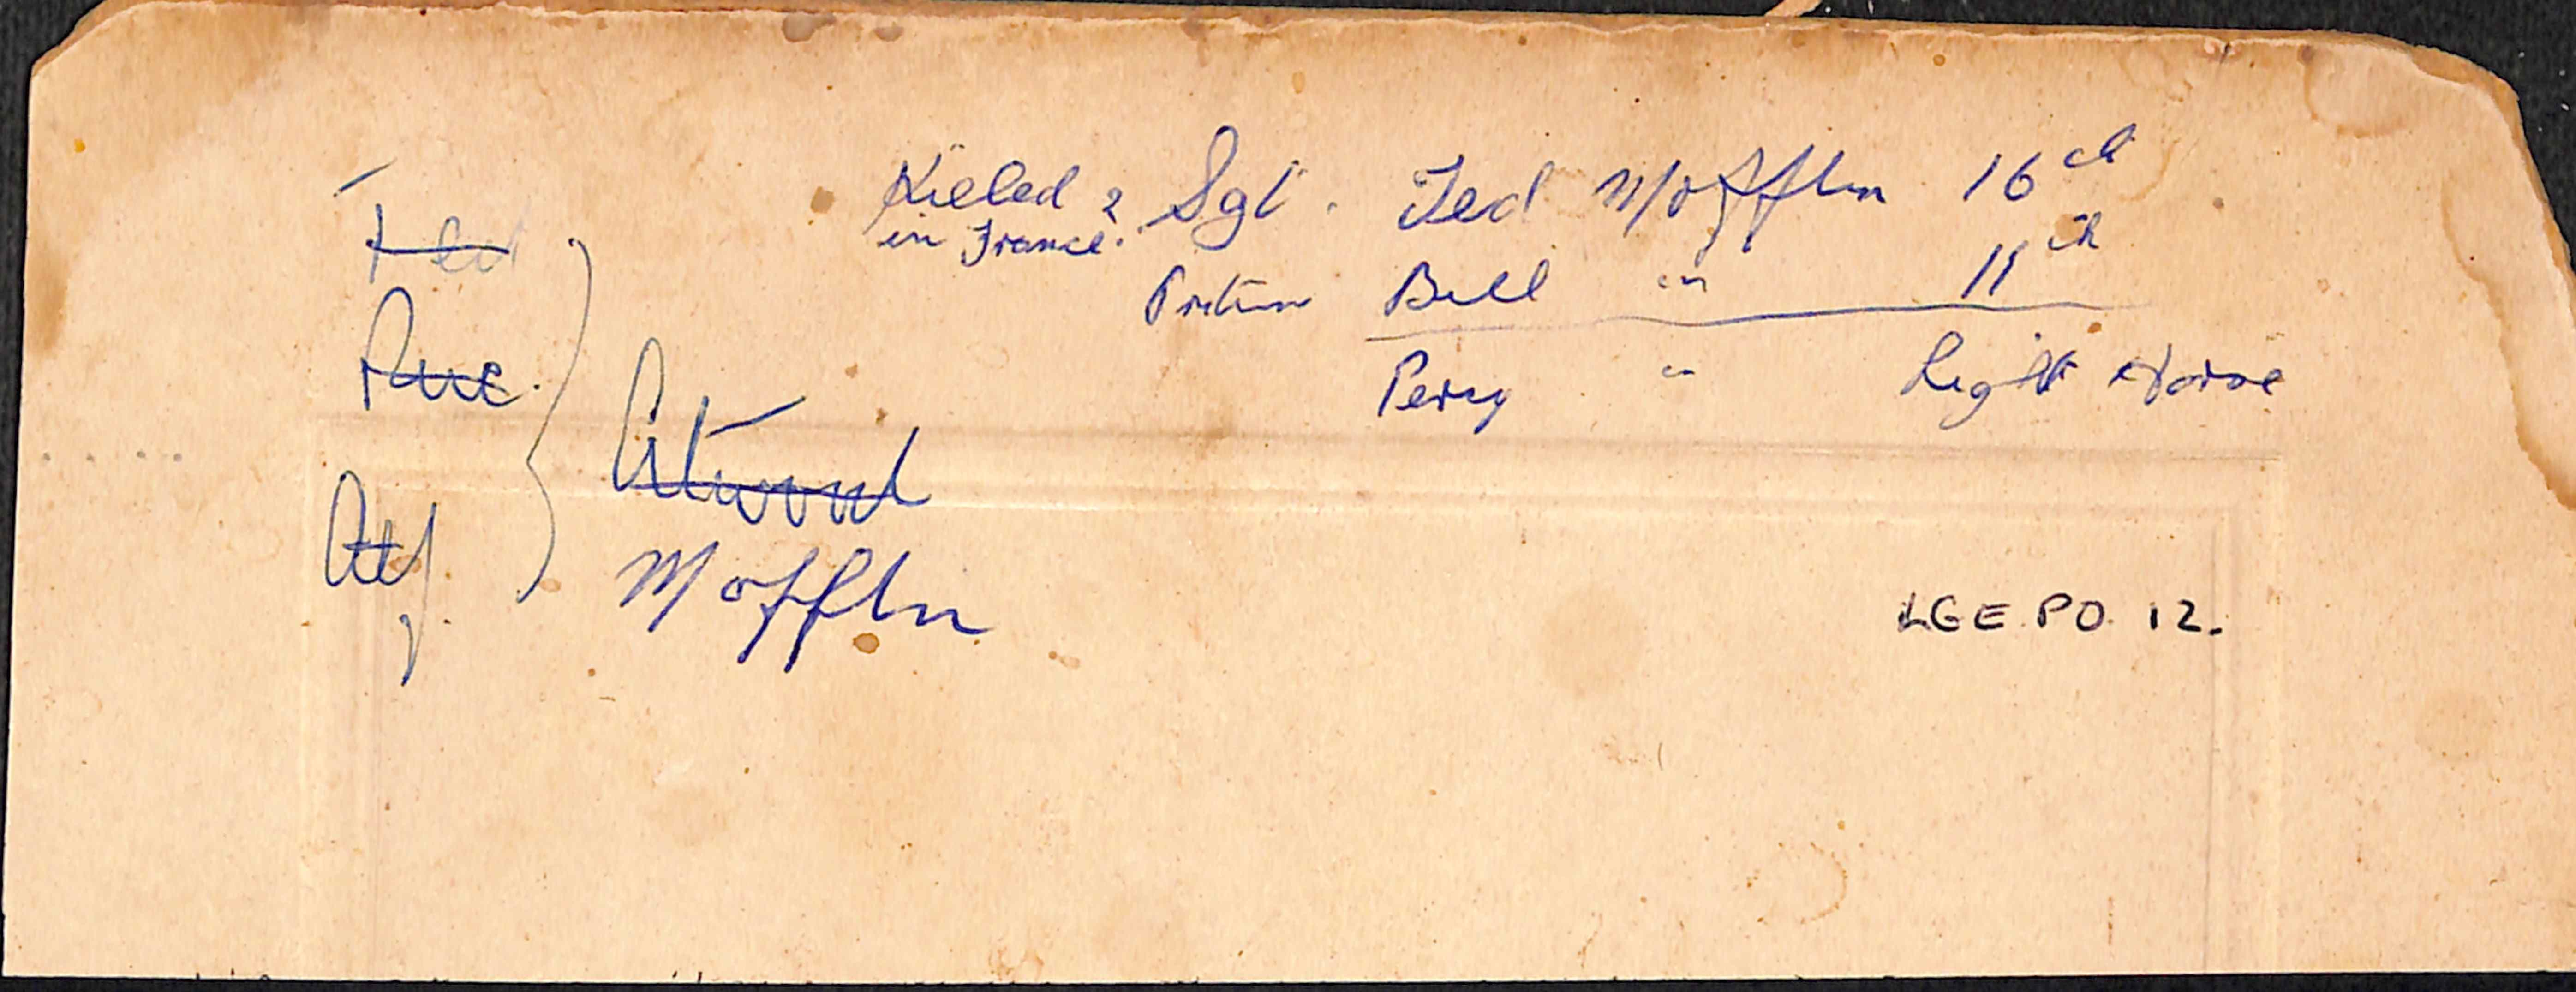 Killed ? Sgt. Ted Mofflin 16th
in France.
Bill " 11th
Percy " Light Horse
Ted
Atwood
Mofflin
LGE PO 12.